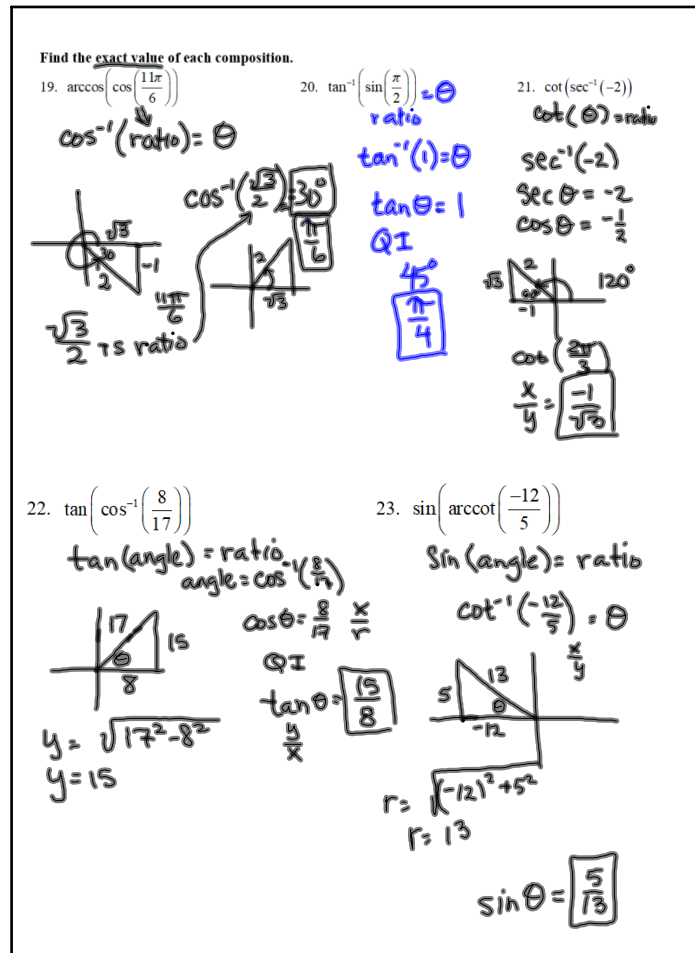 Find the exact value of each composition.
19. arccos(cos(11π/6))
cos⁻¹(ratio) = θ
√3
30
-1
2
11π/6
√3/2 is ratio
cos⁻¹(√3/2) = 30°
π/6
2
√3
20. tan⁻¹(sin(π/2)) = θ
ratio
tan⁻¹(1) = θ
tan θ = 1
QI
45°
π/4
21. cot(sec⁻¹(-2))
cot(θ) = ratio
sec⁻¹(-2)
sec θ = -2
cos θ = -1/2
√3
2
60°
-1
120°
cot(2π/3)
x/y = -1/√3
22. tan(cos⁻¹(8/17))
tan(angle) = ratio
angle = cos⁻¹(8/17)
17
15
θ
8
y = √17²-8²
y = 15
cos θ = 8/17 x/r
QI
tan θ = 15/8
y/x
23. sin(arccot(-12/5))
Sin(angle) = ratio
cot⁻¹(-12/5) = θ
x/y
13
5
θ
-12
r = √(-12)²+5²
r = 13
sin θ = 5/13